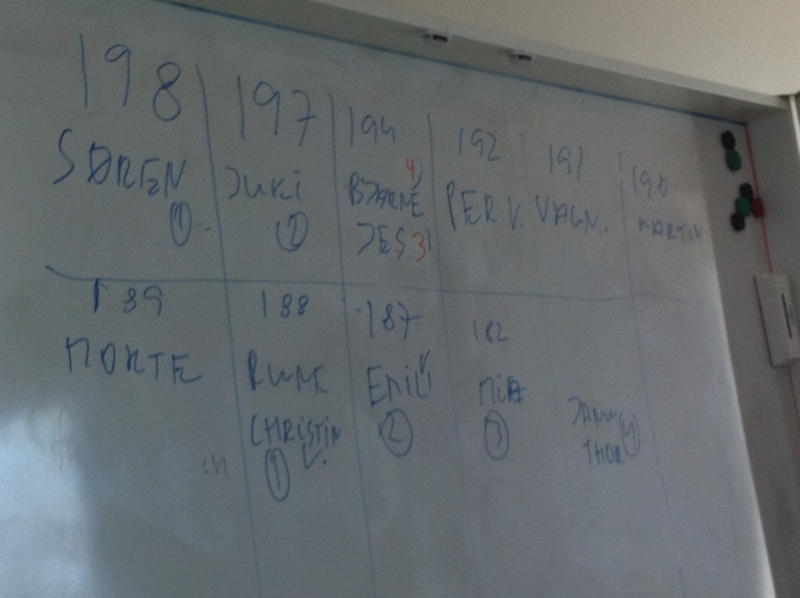 198 197 194 192 191 190
SØREN JUKI BJARNE 4) PER V. VAGN. MARTIN
① ② JES 3)
189 188 187 182
MORTE RUNE EMIL
CHRISTIN V. ② MIA ③
① THOR 4